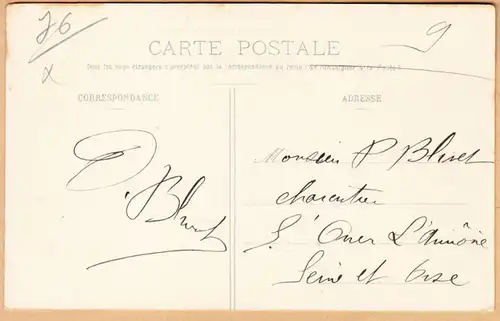 76
x
9
CARTE POSTALE
Tous les pays étrangers n'acceptent pas la correspondance au recto (Se renseigner à la Poste)
CORRESPONDANCE
ADRESSE
P. Blivet
Monsieur P Blivet
charcutier
S.t Ouen L'aumône
Seine et Oise